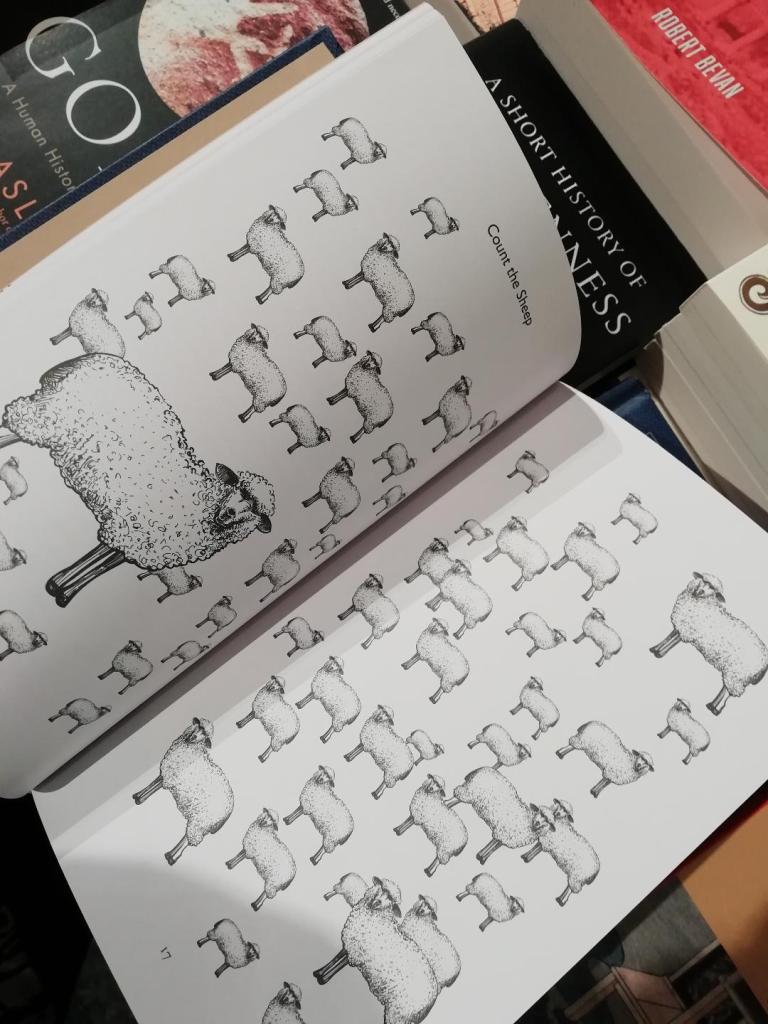 GO
A Human Histor
ASL
A SHORT HISTORY OF
NNESS
ROBERT BEVAN
Count the Sheep
17